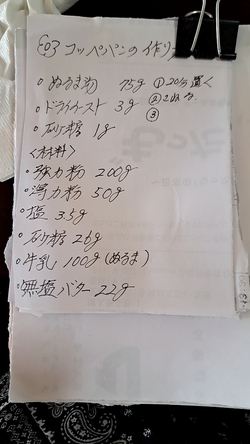 コッペパンの作り
。ぬるま湯 75g ①20分置く
。ドライイースト 3g ②こねる
。砂糖 1g ③
<材料>
。強力粉 200g
。薄力粉 50g
。塩 3.5g
。砂糖 26g
。牛乳 100g(ぬるま)
。無塩バター 22g